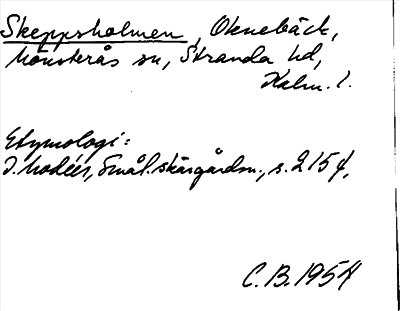 Skeppsholmen, Oknebäck,
Mönsterås sn, Stranda hd,
Kalm. l.
Etymologi:
I. Modéer, Smål. skärgårdsn., s. 215 f.
C. B. 1954